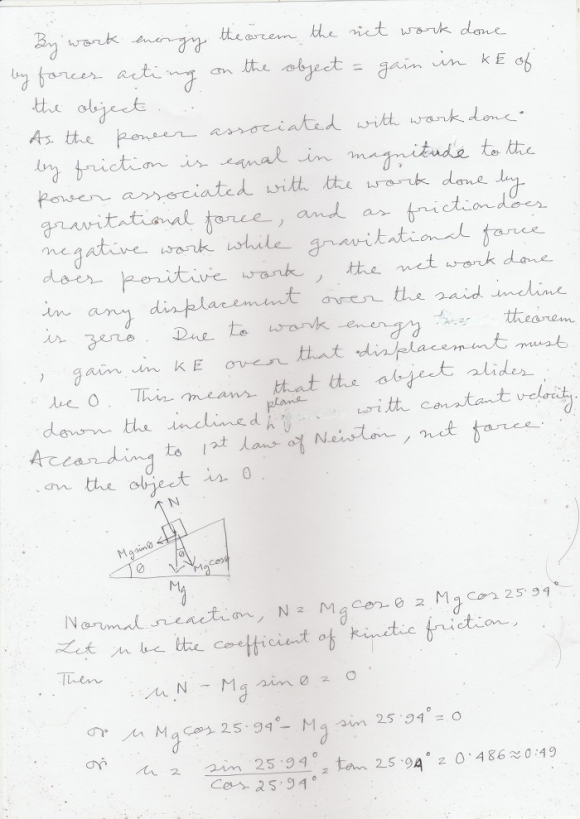 By work energy theorem the net work done
by forces acting on the object = gain in KE of
the object.
As the power associated with work done
by friction is equal in magnitude to the
power associated with the work done by
gravitational force, and as friction does
negative work while gravitational force
does positive work, the net work done
in any displacement over the said incline
is zero. Due to work energy theorem
, gain in KE over that displacement must
be 0. This means that the object slides
plane
down the inclined with constant velocity.
According to 1st law of Newton, net force
on the object is 0.
N
Mg sinθ
θ
θ
Mg cosθ
Mg
Normal reaction, N = Mg cos θ = Mg cos 25.94°
Let μ be the coefficient of kinetic friction,
Then
μ N - Mg sin θ = 0
or μ Mg cos 25.94° - Mg sin 25.94° = 0
or μ = sin 25.94° / cos 25.94° = tan 25.94° = 0.486 ≈ 0.49